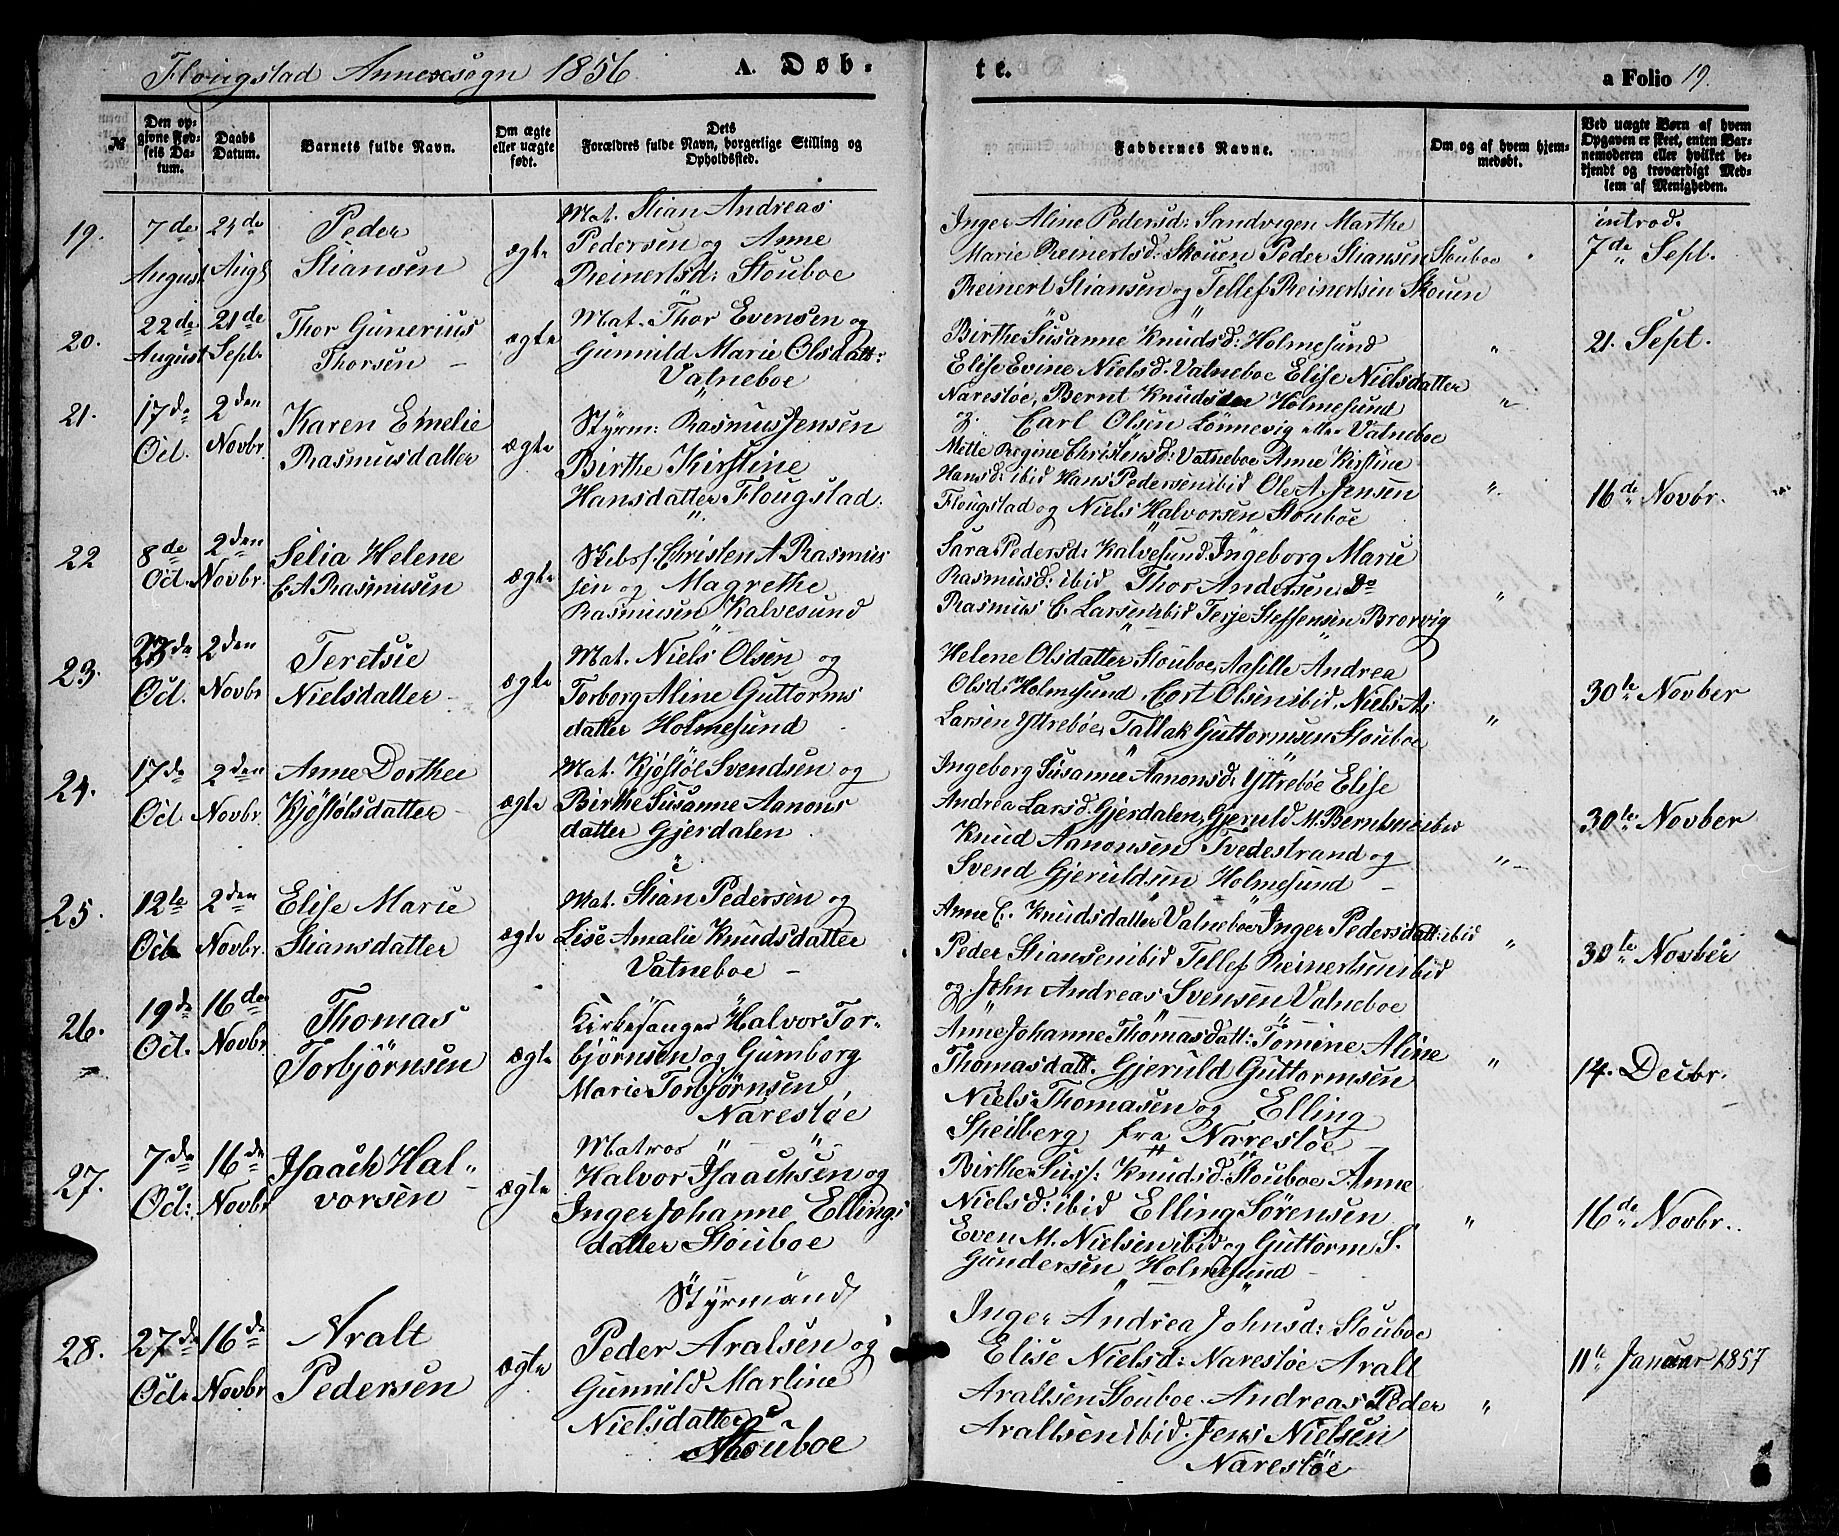 Flougstad Annexsogn 1856. A. Døb- te. a Folio 19.
№ | Den op- givne Fød- sels Da- tum. | Daabs Datum. | Barnets fulde Navn. | Om ægte eller uægte født. | Dets Forældres fulde Navn, borgerlige Stilling og Opholdssted. | Faddernes Navne. | Om og af hvem hjem- medøbt. | Ved uægte Børn af hvem Opgaven er skeet, enten Bar- nemoderen eller hvilket be- kjendt og troværdigt Med- lem af Menigheden.
19. 7de August 24de Augt Peder Stiansen ægte
Mat. Stian Andreas
Pedersen og Anne
Reinertsd: Stouboe
Inger Aline Pedersd: Sandvigen Marthe
Marie Reinertsd: Skouen Peder Stiansen Stouboe
Reinert Stiansen og Tellef Reinertsen Skouen
introd.
7de Sept.
20. 22de August 21de Sept. Thor Gunerius Thorsen ægte
Mat. Thor Evensen og
Gunnild Marie Olsdatt:
Vatneboe
Birthe Susanne Knudsd: Holmesund
Elise Evine Nielsd. Vatneboe Elise Nielsdatter
Narestøe, Bernt Knudsen Holmesund
og Carl Olsen Lønnevig Vatneboe
21. Sept.
21. 17de Oct. 2den Novbr. Karen Emelie Rasmusdatter ægte
Styrm: Rasmus Jensen
Birthe Kirstine
Hansdatter Flougstad.
Mette Regine Christensd: Vatneboe Anne Kirstine
Hansd: ibid Hans Pedersen ibid Ole A. Jensen
Flougstad og Niels Halvorsen Stouboe
16de Novbr.
22 8de Oct. 2den Novbr. Selia Helene C. A Rasmusen ægte
Skibsf. Christen A. Rasmus
sen og Magrethe
Rasmusen Kalvesund
Sara Pedersd: Kalvesund Ingeborg Marie
Rasmusd: ibid Thor Andersen Do
Rasmus C. Larsen ibid Terje Steffensen Brorvig
23. 23de Oct. 2den Novbr Teretsie Nielsdatter ægte
Mat. Niels Olsen og
Torborg Aline Guttorms
datter Holmesund
Helene Olsdatter Stouboe, Aasille Andrea
Olsd: Holmesund, Cort Olsen ibid, Niels As
Larsen Yttrebøe, Tallak Guttormsen Stouboe
30te Novber
24. 17de Oct. 2den Novbr. Anne Dorthee Kjøstølsdatter ægte
Mat. Kjøstøl Svendsen og
Birthe Susanne Aanons
datter Gjerdalen
Ingeborg Susanne Aanonsd: Yttrebøe Elise
Andrea Larsd. Gjerdalen, Gjeruld M. Berntsen ibid
Knud Aanonsen Tvedestrand og
Svend Gjeruldsen Holmesund
30te Novber
25. 12te Oct 2den Novbr. Elise Marie Stiansdatter ægte
Mat. Stian Pedersen og
Lise Amalie Knudsdatter
Vatneboe
Anne C. Knudsdatter Vatneboe Inger Pedersdatt: ibid
Peder Stiansen ibid Tellef Reinertsen ibid
og John Andreas Svensen Vatneboe
30te Novber
26. 19de Oct. 16de Novbr Thomas Torbjørnsen ægte
Kirkesanger Halvor Tor-
bjørnsen og Gumborg
Marie Torbjørnsen
Narestøe
Anne Johanne Thomasdatt: Tomine Aline
Thomasdatt. Gjeruld Guttormsen
Niels Thomasen og Elling
Speilberg fra Narestøe
14. Decbr.
27. 7de Oct: 16de Novbr Isaach Hal- vorsen ægte
Matros
Halvor Isaachsen og
Inger Johanne Ellings
datter Stouboe
Birthe Suss: Knudsd: Stouboe Anne
Nielsd: ibid Elling Sørensen
Even M. Nielsen ibid og Guttorm S.
Gundersen Holmesund
16de Novbr.
28. 27de Oct. 16de Novbr Aralt Pedersen ægte
Styrmand
Peder Aralsen og
Gunnild Martine
Nielsdatter
Stouboe
Inger Andrea Johnsd: Stouboe
Elise Nielsd: Narestøe Aralt
Araltsen Stouboe. Andreas Peder
Araltsen ibid. Jens Nielsen
Narestøe
11te Januar 1857